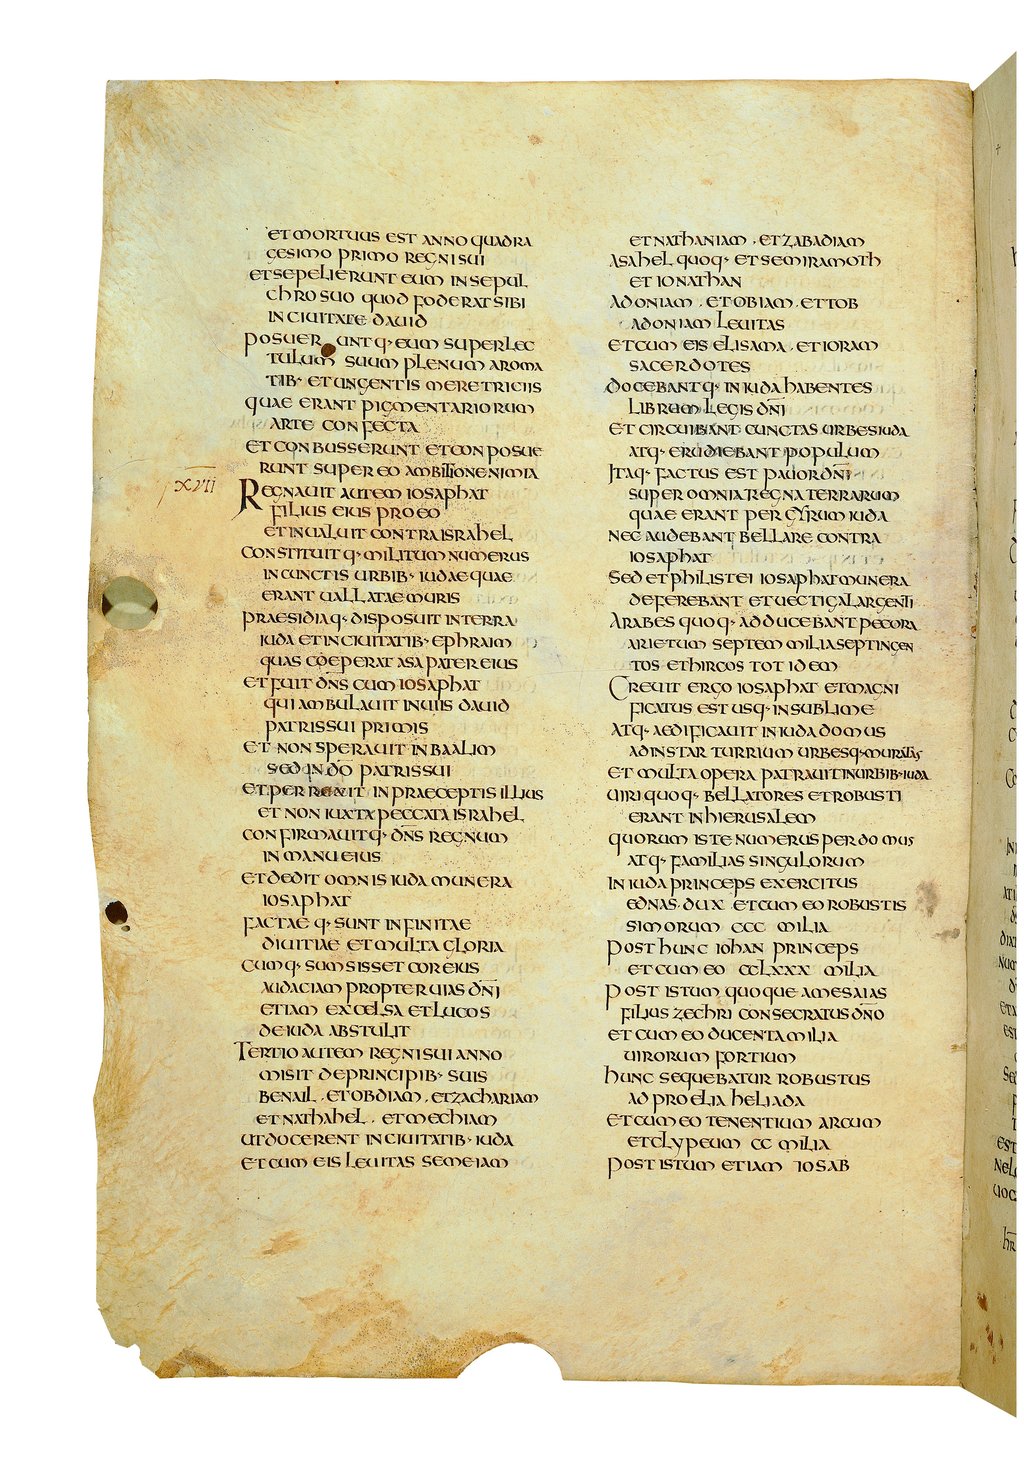 ET MORTUUS EST ANNO QUADRA
GESIMO PRIMO REGNI SUI
ET SEPELIERUNT EUM IN SEPUL
CHRO SUO QUOD FODERAT SIBI
IN CIUITATE DAUID
POSUERUNT Q· EUM SUPER LEC
TULUM SUUM PLENUM AROMA
TIB· ET UNGENTIS MERETRICIIS
QUAE ERANT PIGMENTARIORUM
ARTE CONFECTA
ET CONBUSSERUNT ET CONPOSUE
RUNT SUPER EO AMBITIONE NIMIA
XVII
REGNAUIT AUTEM IOSAPHAT
FILIUS EIUS PRO EO
ET INUALUIT CONTRA ISRAHEL
CONSTITUIT Q· MILITUM NUMERUS
IN CUNCTIS URBIB· IUDAE QUAE
ERANT UALLATAE MURIS
PRAESIDIA Q· DISPOSUIT IN TERRA
IUDA ET IN CIUITATIB· EPHRAIM
QUAS COEPERAT ASA PATER EIUS
ET FUIT DN̅S CUM IOSAPHAT
QUI AMBULAUIT IN UIIS DAUID
PATRIS SUI PRIMIS
ET NON SPERAUIT IN BAALIM
SED IN D̅O PATRIS SUI
ET PERREXIT IN PRAECEPTIS ILLIUS
ET NON IUXTA PECCATA ISRAHEL
CONFIRMAUIT Q· DN̅S REGNUM
IN MANU EIUS
ET DEDIT OMNIS IUDA MUNERA
IOSAPHAT
FACTAE Q· SUNT INFINITAE
DIUITIAE ET MULTA GLORIA
CUM Q· SUMSISSET COR EIUS
AUDACIAM PROPTER UIAS DN̅I
ETIAM EXCELSA ET LUCOS
DE IUDA ABSTULIT
TERTIO AUTEM REGNI SUI ANNO
MISIT DE PRINCIPIB· SUIS
BENAIL · ET OBDIAM · ET ZACHARIAM
ET NATHAHEL · ET MECHIAM
UT DOCERENT IN CIUITATIB· IUDA
ET CUM EIS LEUITAS SEMEIAM
ET NATHANIAM · ET ZABADIAM
ASAHEL QUOQ· ET SEMIRAMOTH
ET IONATHAN
ADONIAM · ET OBIAM · ET TOB
ADONIAM LEUITAS
ET CUM EIS ELISAMA · ET IORAM
SACERDOTES
DOCEBANT Q· IN IUDA HABENTES
LIBRUM LEGIS DN̅I
ET CIRCUIBANT CUNCTAS URBES IUDA
ATQ· ERUDIEBANT POPULUM
ITAQ· FACTUS EST PAUOR DN̅I
SUPER OMNIA REGNA TERRARUM
QUAE ERANT PER GYRUM IUDA
NEC AUDEBANT BELLARE CONTRA
IOSAPHAT
SED ET PHILISTEI IOSAPHAT MUNERA
DEFEREBANT ET UECTIGAL ARGENTI
ARABES QUOQ· ADDUCEBANT PECORA
ARIETUM SEPTEM MILIA SEPTINGEN
TOS ET HIRCOS TOTIDEM
CREUIT ERGO IOSAPHAT ET MAGNI
FICATUS EST USQ· IN SUBLIME
ATQ· AEDIFICAUIT IN IUDA DOMUS
AD INSTAR TURRIUM URBESQ· MURATAS
ET MULTA OPERA PATRAUIT IN URBIB· IUDA
UIRI QUOQ· BELLATORES ET ROBUSTI
ERANT IN HIERUSALEM
QUORUM ISTE NUMERUS PER DOMUS
ATQ· FAMILIAS SINGULORUM
IN IUDA PRINCEPS EXERCITUS
EDNAS · DUX ET CUM EO ROBUSTIS
SIMORUM CCC MILIA
POST HUNC IOHAN PRINCEPS
ET CUM EO CCLXXX MILIA
POST ISTUM QUOQUE AMESAIAS
FILIUS ZECHRI CONSECRATUS DN̅O
ET CUM EO DUCENTA MILIA
UIRORUM FORTIUM
HUNC SEQUEBATUR ROBUSTUS
AD PROELIA HELIADA
ET CUM EO TENENTIUM ARCUM
ET CLYPEUM CC MILIA
POST ISTUM ETIAM IOSAB